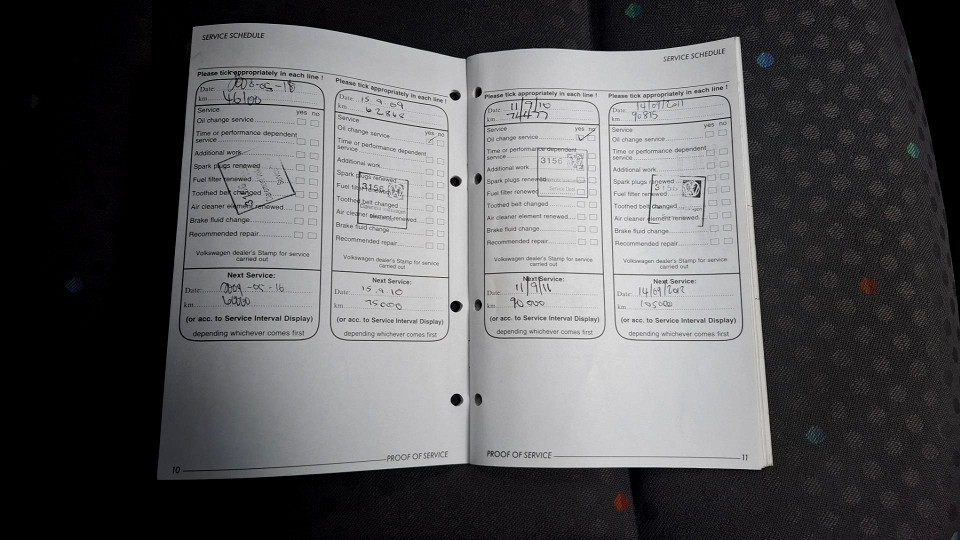 SERVICE SCHEDULE
Please tick appropriately in each line !
Date
km 46100
Service yes no
Oil change service
Time or performance dependent
service
Additional work
Spark plugs renewed
Fuel filter renewed
Toothed belt changed
Air cleaner element renewed
Brake fluid change
Recommended repair
Volkswagen dealer's Stamp for service
carried out
Next Service:
Date: 2009-05-16
km
(or acc. to Service Interval Display)
depending whichever comes first
10
Please tick appropriately in each line !
Date 15.9.09
km 62868
Service yes no
Oil change service
Time or performance dependent
service
Additional work
Spark plugs renewed
3156
Fuel filter renewed
Toothed belt changed
Air cleaner element renewed
Brake fluid change
Recommended repair
Volkswagen dealer's Stamp for service
carried out
Next Service:
Date: 15.9.10
km 75000
(or acc. to Service Interval Display)
depending whichever comes first
PROOF OF SERVICE
SERVICE SCHEDULE
Please tick appropriately in each line !
Date 11/9/10
km 74477
Service yes no
Oil change service
Time or performance dependent
service
3156
Additional work
Spark plugs renewed
Fuel filter renewed
Toothed belt changed
Air cleaner element renewed
Brake fluid change
Recommended repair
Volkswagen dealer's Stamp for service
carried out
Next Service:
Date: 11/9/11
km 90 000
(or acc. to Service Interval Display)
depending whichever comes first
PROOF OF SERVICE
Please tick appropriately in each line !
Date 14/09/2011
km 90815
Service yes no
Oil change service
Time or performance dependent
service
Additional work
Spark plugs renewed
3156
Fuel filter renewed
Toothed belt changed
Air cleaner element renewed
Brake fluid change
Recommended repair
Volkswagen dealer's Stamp for service
carried out
Next Service:
Date: 14/09/2012
km 105000
(or acc. to Service Interval Display)
depending whichever comes first
11